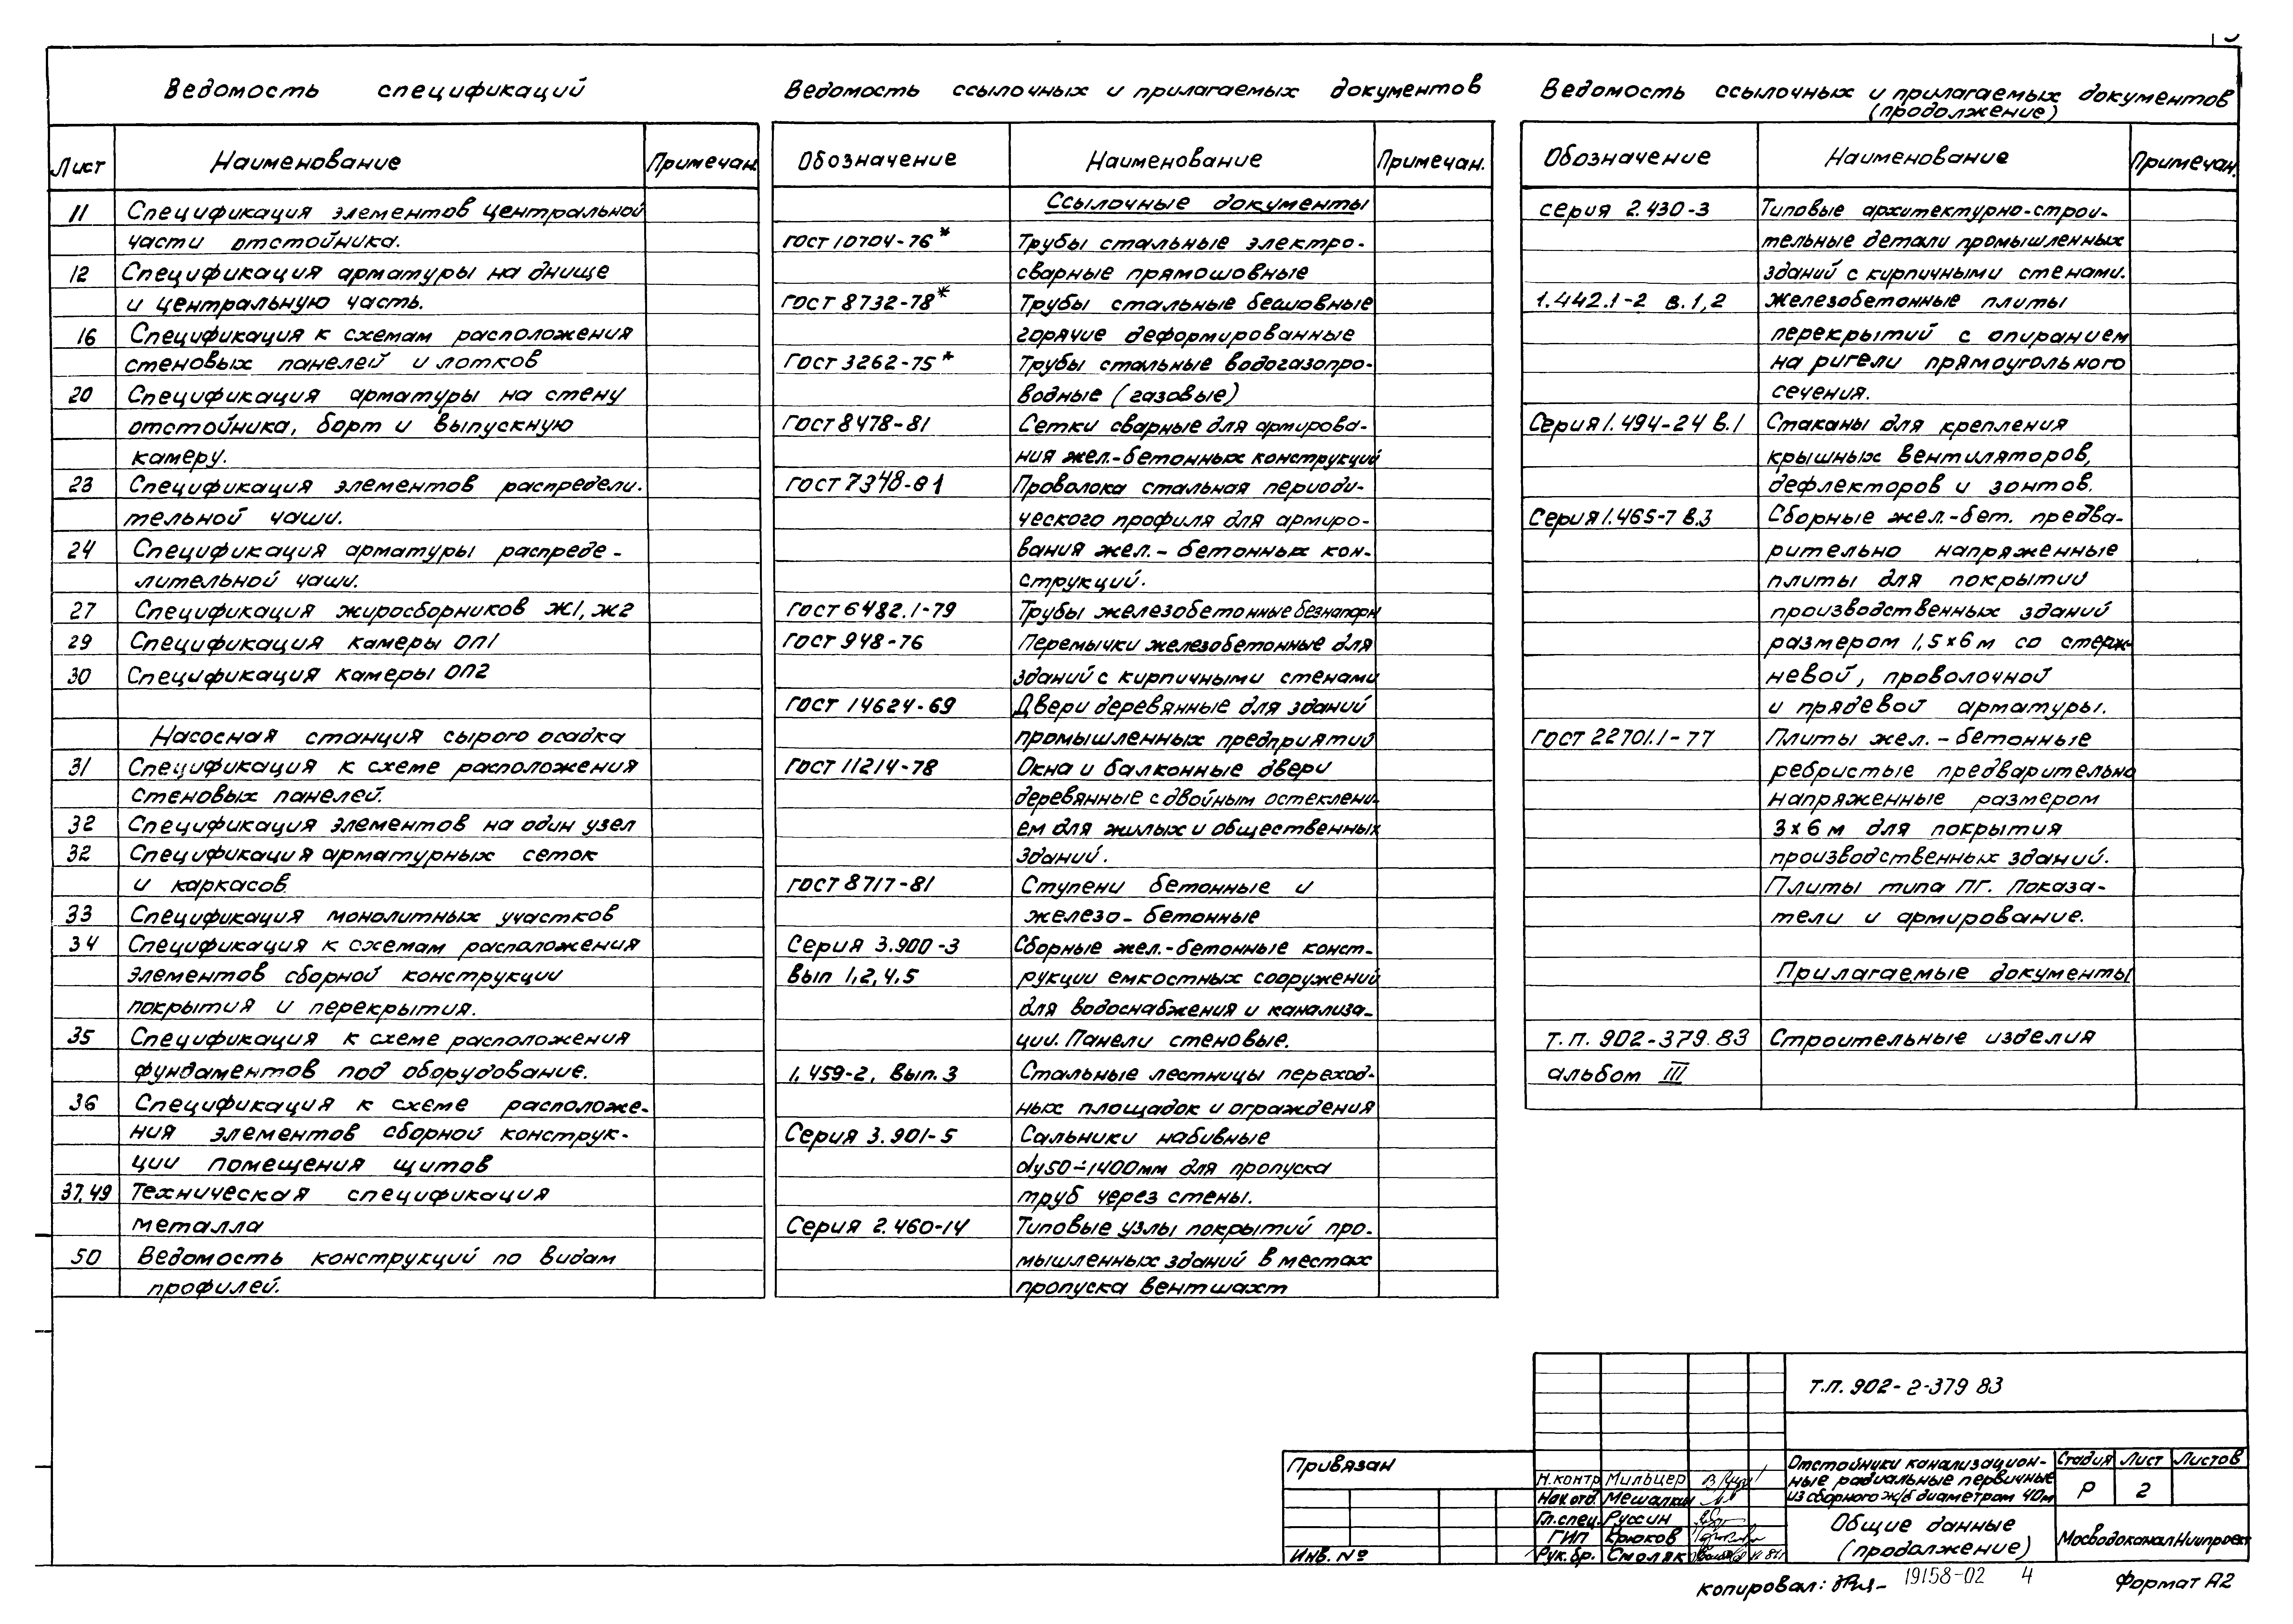 Ведомость спецификаций
Лист Наименование Примечан.
11 Спецификация элементов центральной
части отстойника.
12 Спецификация арматуры на днище
и центральную часть.
16 Спецификация к схемам расположения
стеновых панелей и лотков
20 Спецификация арматуры на стену
отстойника, борт и выпускную
камеру.
23 Спецификация элементов распредели-
тельной чаши.
24 Спецификация арматуры распреде-
лительной чаши.
27 Спецификация жиросборников Ж1, Ж2
29 Спецификация камеры ОП1
30 Спецификация камеры ОП2
Насосная станция сырого осадка
31 Спецификация к схеме расположения
стеновых панелей.
32 Спецификация элементов на один узел
32 Спецификация арматурных сеток
и каркасов.
33 Спецификация монолитных участков
34 Спецификация к схемам расположения
элементов сборной конструкции
покрытия и перекрытия.
35 Спецификация к схеме расположения
фундаментов под оборудование.
36 Спецификация к схеме расположе-
ния элементов сборной конструк-
ции помещения щитов
37,49 Техническая спецификация
металла
50 Ведомость конструкций по видам
профилей.
Ведомость ссылочных и прилагаемых документов
Обозначение Наименование Примечан.
Ссылочные документы
ГОСТ 10704-76* Трубы стальные электро-
сварные прямошовные
ГОСТ 8732-78* Трубы стальные бесшовные
горячие деформированные
ГОСТ 3262-75* Трубы стальные водогазопро-
водные (газовые)
ГОСТ 8478-81 Сетки сварные для армирова-
ния жел.-бетонных конструкций
ГОСТ 7348-81 Проволока стальная периоди-
ческого профиля для армиро-
вания жел.-бетонных кон-
струкций.
ГОСТ 6482.1-79 Трубы железобетонные безнапорн
ГОСТ 948-76 Перемычки железобетонные для
зданий с кирпичными стенами
ГОСТ 14624-69 Двери деревянные для зданий
промышленных предприятий
ГОСТ 11214-78 Окна и балконные двери
деревянные с двойным остеклени-
ем для жилых и общественных
зданий.
ГОСТ 8717-81 Ступени бетонные и
железо-бетонные
Серия 3.900-3 Сборные жел.-бетонные конст-
Вып 1,2,4,5 рукции емкостных сооружений
для водоснабжения и канализа-
ции. Панели стеновые.
1.459-2, Вып. 3 Стальные лестницы переход-
ных площадок и ограждения
Серия 3.901-5 Сальники набивные
dу50÷1400мм для пропуска
труб через стены.
Серия 2.460-14 Типовые узлы покрытий про-
мышленных зданий в местах
пропуска вентшахт
Ведомость ссылочных и прилагаемых документов
(продолжение)
Обозначение Наименование Примечан.
серия 2.430-3 Типовые архитектурно-строи-
тельные детали промышленных
зданий с кирпичными стенами.
1.442.1-2 в.1,2 Железобетонные плиты
перекрытий с опиранием
на ригели прямоугольного
сечения.
Серия 1.494-24 в.1 Стаканы для крепления
крышных вентиляторов,
дефлекторов и зонтов.
Серия 1.465-7 в.3 Сборные жел.-бет. предва-
рительно напряженные
плиты для покрытий
производственных зданий
размером 1,5×6м со стерж-
невой, проволочной
и прядевой арматуры.
ГОСТ 22701.1-77 Плиты жел.-бетонные
ребристые предварительно
напряженные размером
3×6м для покрытия
производственных зданий.
Плиты типа ПГ. Показа-
тели и армирование.
Прилагаемые документы
Т.П. 902-379.83 Строительные изделия
альбом III
Т.П. 902-2-379 83
Привязан
Инв. №
Н.контр Мильцер
Нач.отд. Мешалкин
Гл.спец. Руссин
ГИП Крюков
Рук.бр. Смоляк
Отстойники канализацион-
ные радиальные первичные
из сборного ж/б диаметром 40м
Стадия Лист Листов
Р 2
Общие данные
(продолжение)
МосводоканалНиипроект
Копировал: 19158-02 4 Формат А2